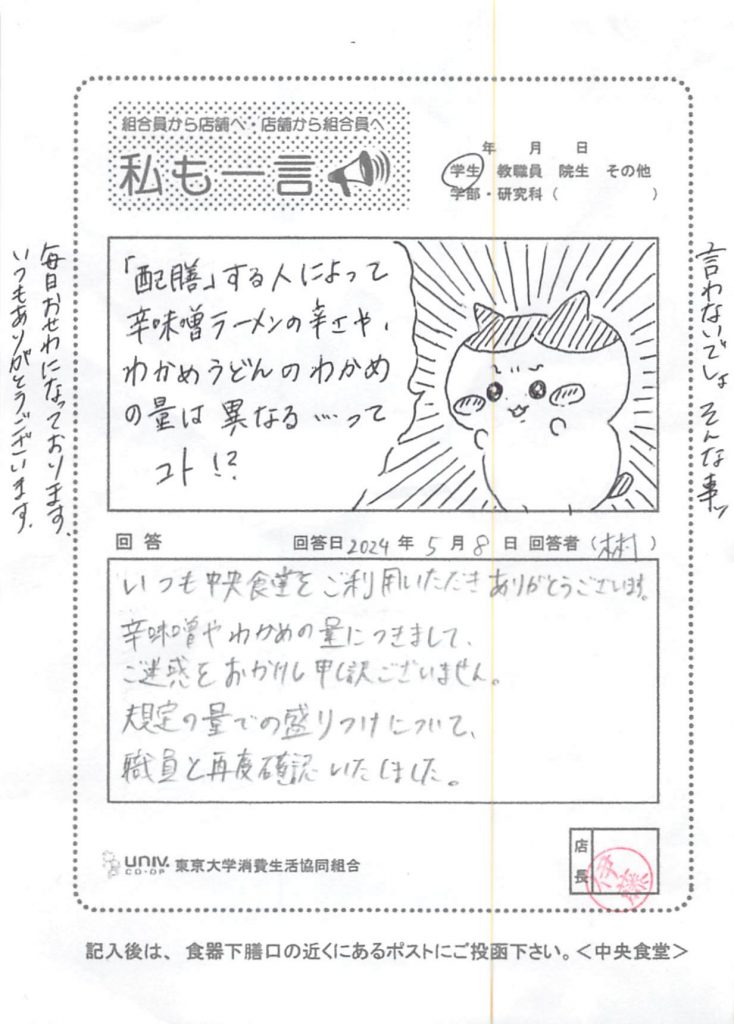 組合員から店舗へ・店舗から組合員へ
私も一言
年 月 日
学生 教職員 院生 その他
学部・研究科( )
「配膳」する人によって
辛味噌ラーメンの辛さや、
わかめうどんのわかめ
の量は異なる…って
コト!?
言わないでしょ そんな事ッ
毎日おせわになっております、
いつもありがとうございます、
回答 回答日 2024 年 5 月 8 日 回答者 ( )
いつも中央食堂をご利用いただきありがとうございます。
辛味噌やわかめの量につきまして、
ご迷惑をおかけし申し訳ございません。
規定の量での盛りつけについて、
職員と再度確認いたしました。
UNIV. CO-OP 東京大学消費生活協同組合
店長
記入後は、食器下膳口の近くにあるポストにご投函下さい。<中央食堂>